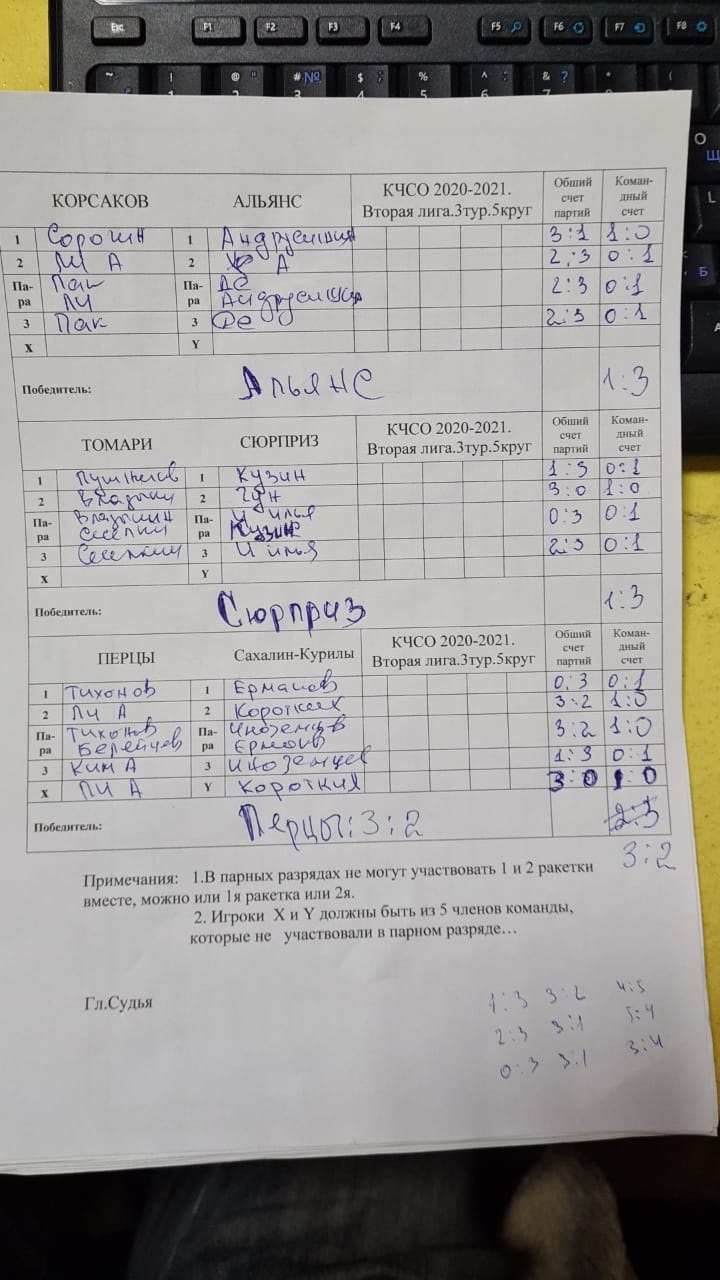 Esc F1 F2 F3 F4 F5 F6 F7 F8
КОРСАКОВ АЛЬЯНС КЧСО 2020-2021. Вторая лига.3тур.5круг Общий счет партий Коман-дный счет
1 Сорокин 1 3:1 1:0
2 Ли А 2 А 2:3 0:1
Па-ра Пак Па-ра Де 2:3 0:1
Ли
3 Пак 3 Де 2:3 0:1
X Y
Победитель: Альянс 1:3
ТОМАРИ СЮРПРИЗ КЧСО 2020-2021. Вторая лига.3тур.5круг Общий счет партий Коман-дный счет
1 1 Кузин 1:3 0:1
2 2 Гун 3:0 1:0
Па-ра Па-ра И илья 0:3 0:1
Кузин
3 3 И илья 2:3 0:1
X Y
Победитель: Сюрприз 1:3
ПЕРЦЫ Сахалин-Курилы КЧСО 2020-2021. Вторая лига.3тур.5круг Общий счет партий Коман-дный счет
1 Тихонов 1 Ермаков 0:3 0:1
2 Ли А 2 Коротких 3:2 1:0
Па-ра Тихонов Па-ра Иноземцев 3:2 1:0
3 Ким А 3 Иноземцев 1:3 0:1
X Ли А Y Коротких 3:0 1:0
Победитель: Перцы:3:2 2:3
3:2
Примечания: 1.В парных разрядах не могут участвовать 1 и 2 ракетки
вместе, можно или 1я ракетка или 2я.
2. Игроки X и Y должны быть из 5 членов команды,
которые не участвовали в парном разряде…
Гл.Судья
1:3 3:2 4:5
2:3 3:1 5:4
0:3 3:1 3:4